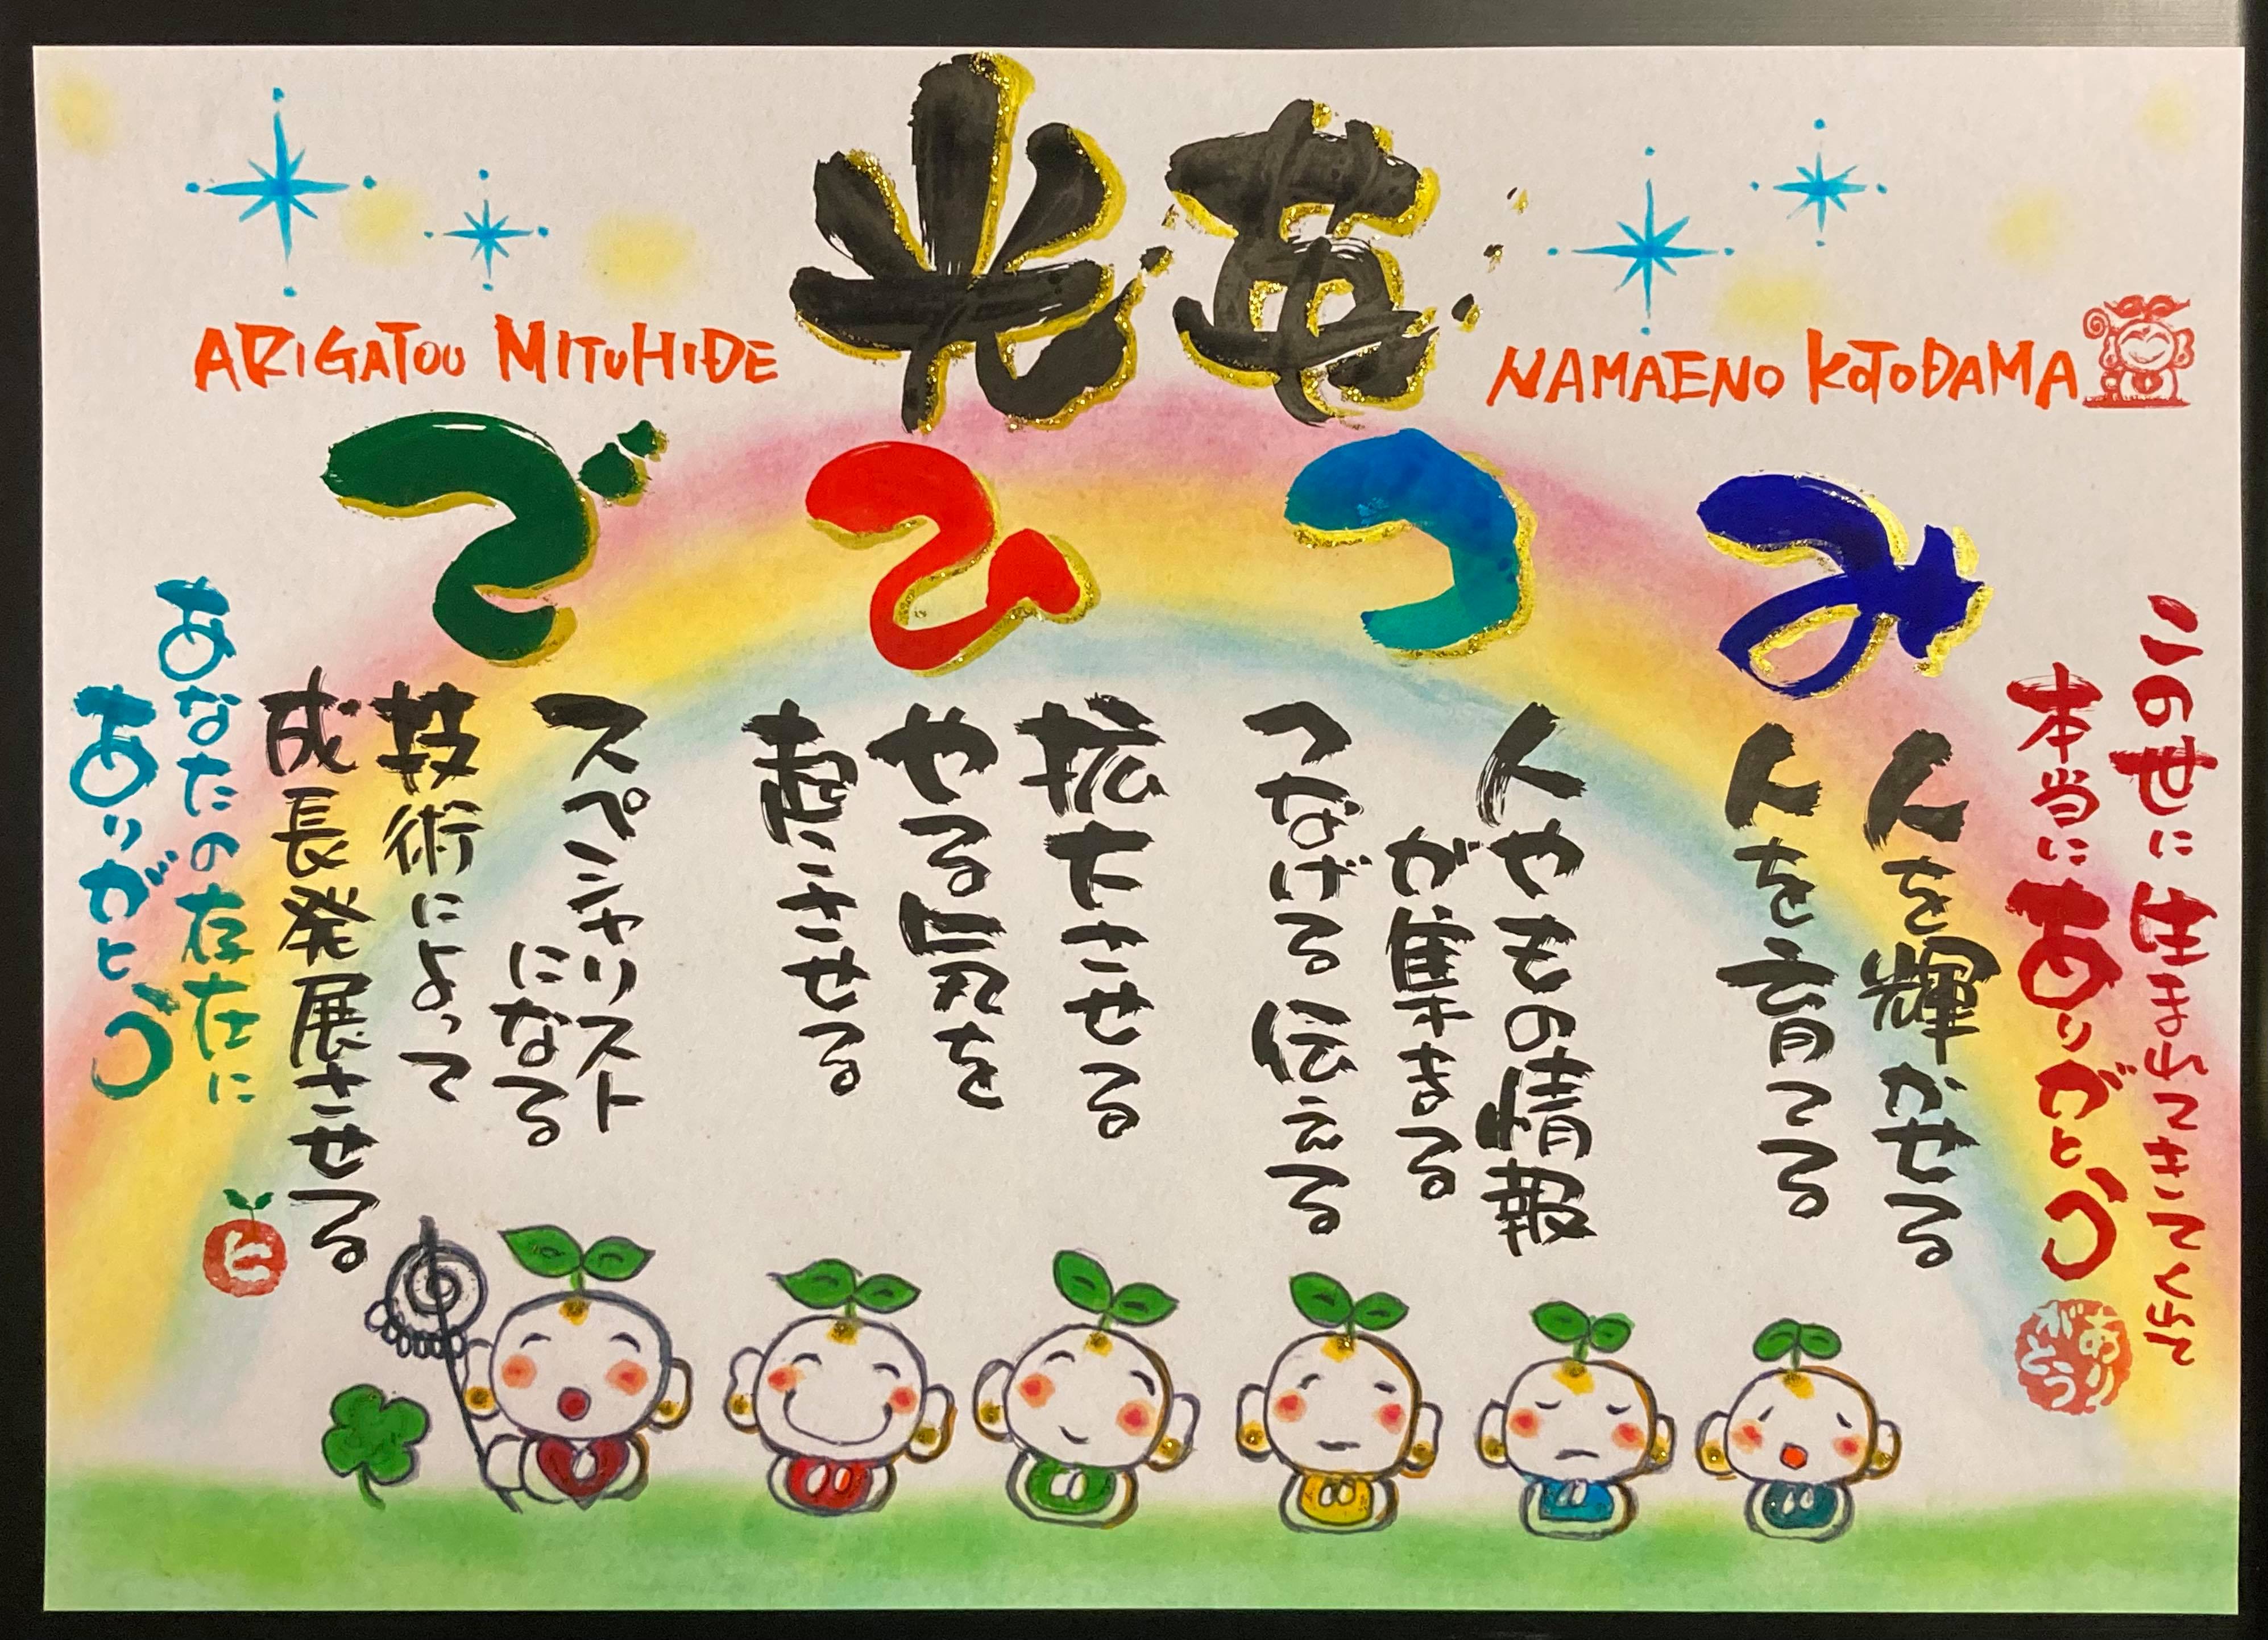 光英
ARIGATOU MITUHIDE
NAMAENO KOTODAMA
みつひで
この世に生まれてきてくれて
本当にありがとう
ありがとう
人を輝かせる
人を育てる
人やもの情報
が集まる
つなげる伝える
拡大させる
やる気を
起こさせる
スペシャリスト
になる
技術によって
成長発展させる
あなたの存在に
ありがとう